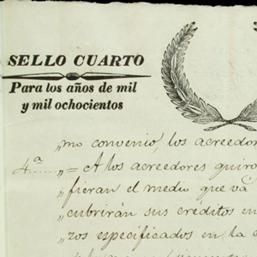 SELLO CUARTO
Para los años de mil
y mil ochocientos
"mo convenio, los acreedor
4.ª = A los acreedores quiro
"fieran el medio que va
"cubrirán sus creditos en
"zos especificados en la